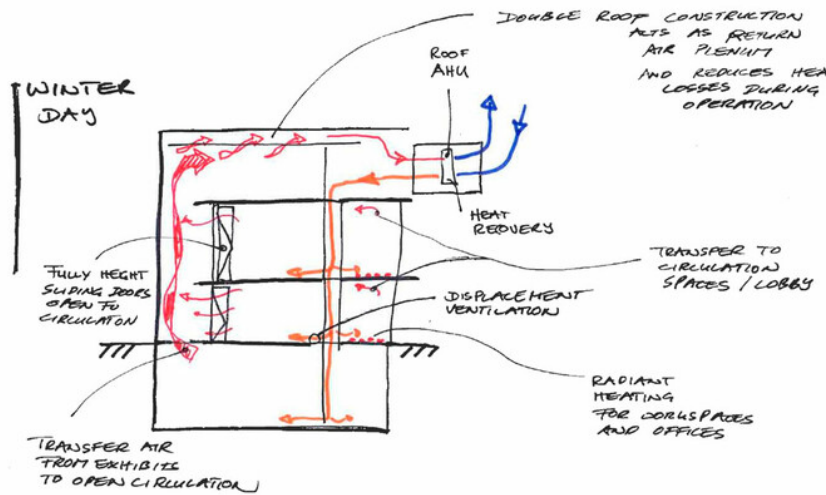 WINTER
DAY
DOUBLE ROOF CONSTRUCTION
ACTS AS RETURN
AIR PLENUM
AND REDUCES HEA
LOSSES DURING
OPERATION
ROOF
AHU
HEAT
RECOVERY
FULLY HEIGHT
SLIDING DOORS
OPEN TO
CIRCULATION
DISPLACEMENT
VENTILATION
TRANSFER TO
CIRCULATION
SPACES / LOBBY
RADIANT
HEATING
FOR WORKSPACES
AND OFFICES
TRANSFER AIR
FROM EXHIBITS
TO OPEN CIRCULATION